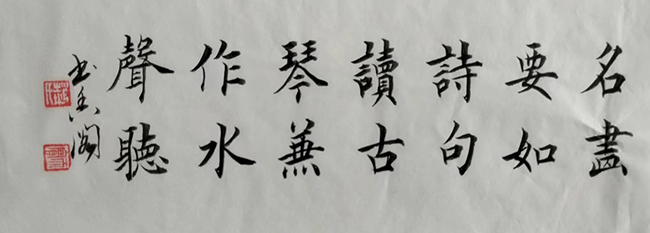 名畫
要如
詩句
讀古
琴兼
作水
聲聽
书香阁